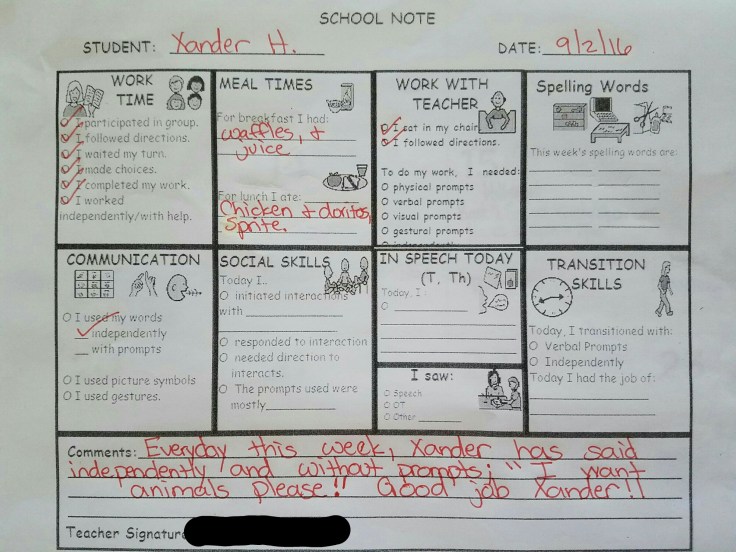 SCHOOL NOTE
STUDENT: Xander H.
DATE: 9/2/16
WORK TIME
I participated in group.
I followed directions.
I waited my turn.
I made choices.
I completed my work.
I worked
independently/with help.
MEAL TIMES
For breakfast I had:
waffles, &
juice
For lunch I ate:
Chicken & doritos,
Sprite.
WORK WITH
TEACHER
I sat in my chair
I followed directions.
To do my work, I needed:
O physical prompts
O verbal prompts
O visual prompts
O gestural prompts
O independently
Spelling Words
This week's spelling words are:
COMMUNICATION
O I used my words
independently
with prompts
O I used picture symbols
O I used gestures.
SOCIAL SKILLS
Today I..
O initiated interactions
with
O responded to interaction
O needed direction to
interacts.
O The prompts used were
mostly
IN SPEECH TODAY
(T, Th)
Today, I
O
I saw:
O Speech
O OT
O Other
TRANSITION
SKILLS
Today, I transitioned with:
O Verbal Prompts
O Independently
Today I had the job of:
Comments: Everyday this week, Xander has said
independently and without prompts; "I want
animals please!! Good job Xander!!
Teacher Signature